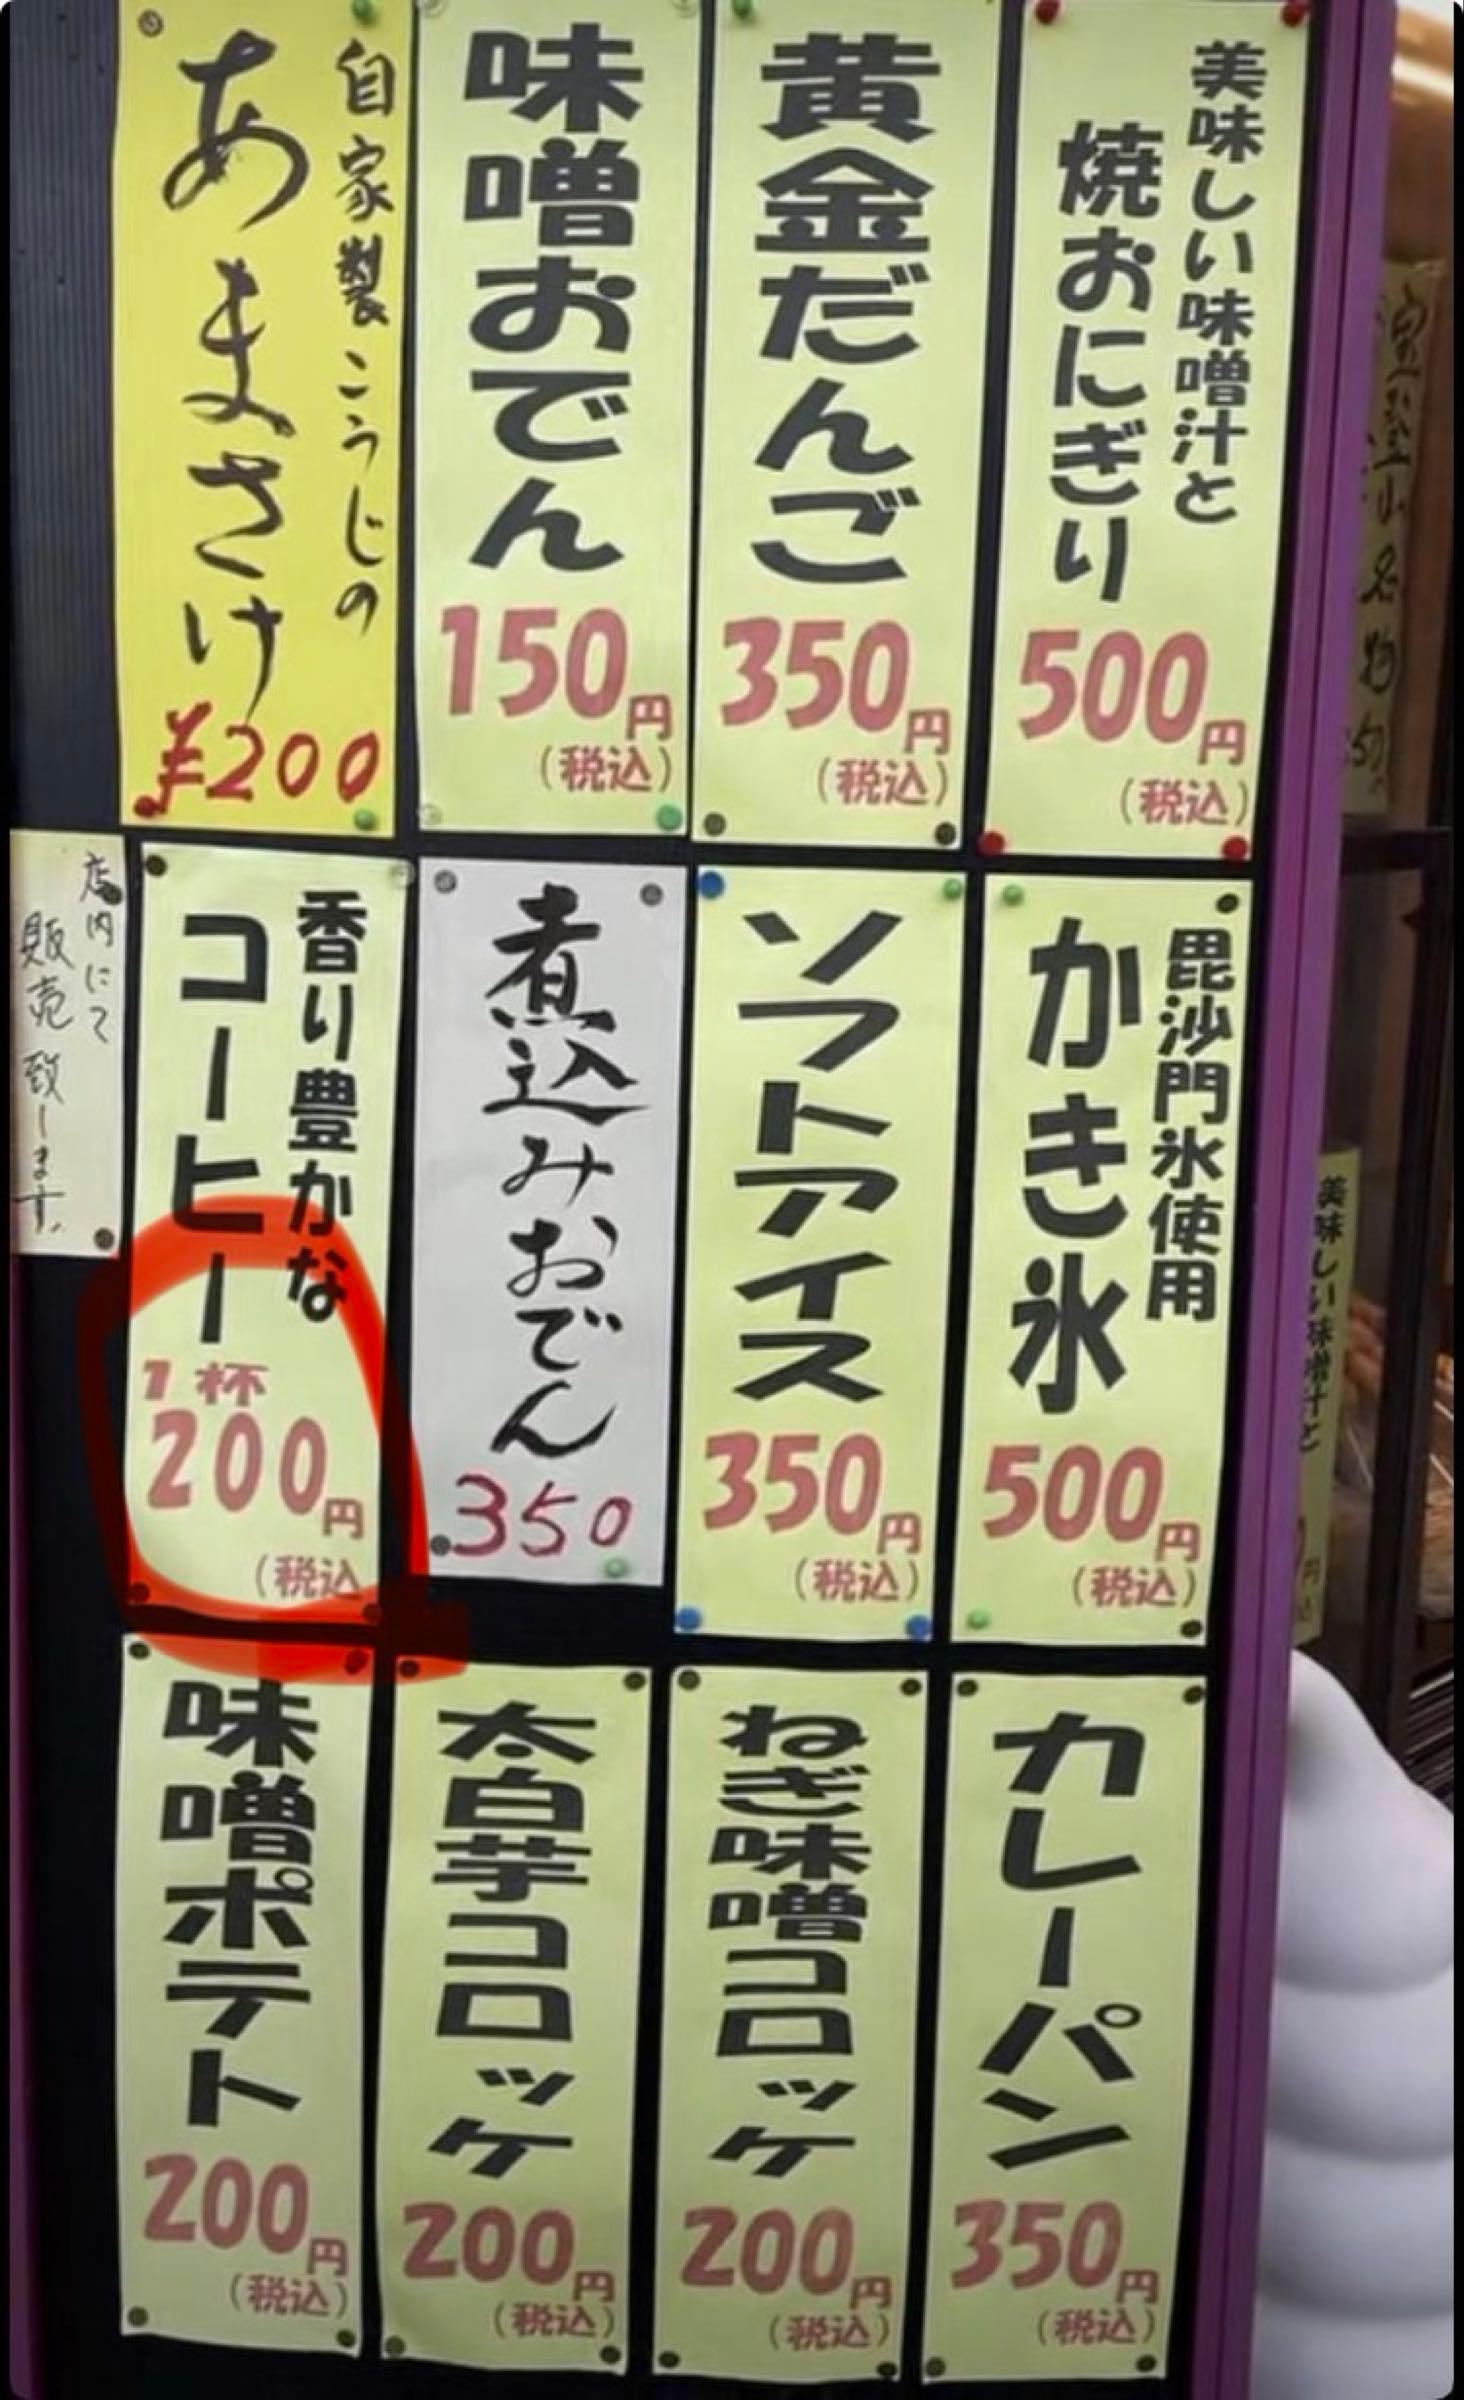 美味しい味噌汁と
焼おにぎり
500円
(税込)
黄金だんご
350円
(税込)
味噌おでん
150円
(税込)
自家製こうじの
あまさけ
¥200
毘沙門氷使用
かき氷
500円
(税込)
ソフトアイス
350円
(税込)
煮込みおでん
350
香り豊かな
コーヒー
1杯
200円
(税込
店内にて
販売致します。
カレーパン
350円
(税込)
ねぎ味噌コロッケ
200円
(税込)
太白芋コロッケ
200円
(税込)
味噌ポテト
200円
(税込)
美味しい味噌汁と